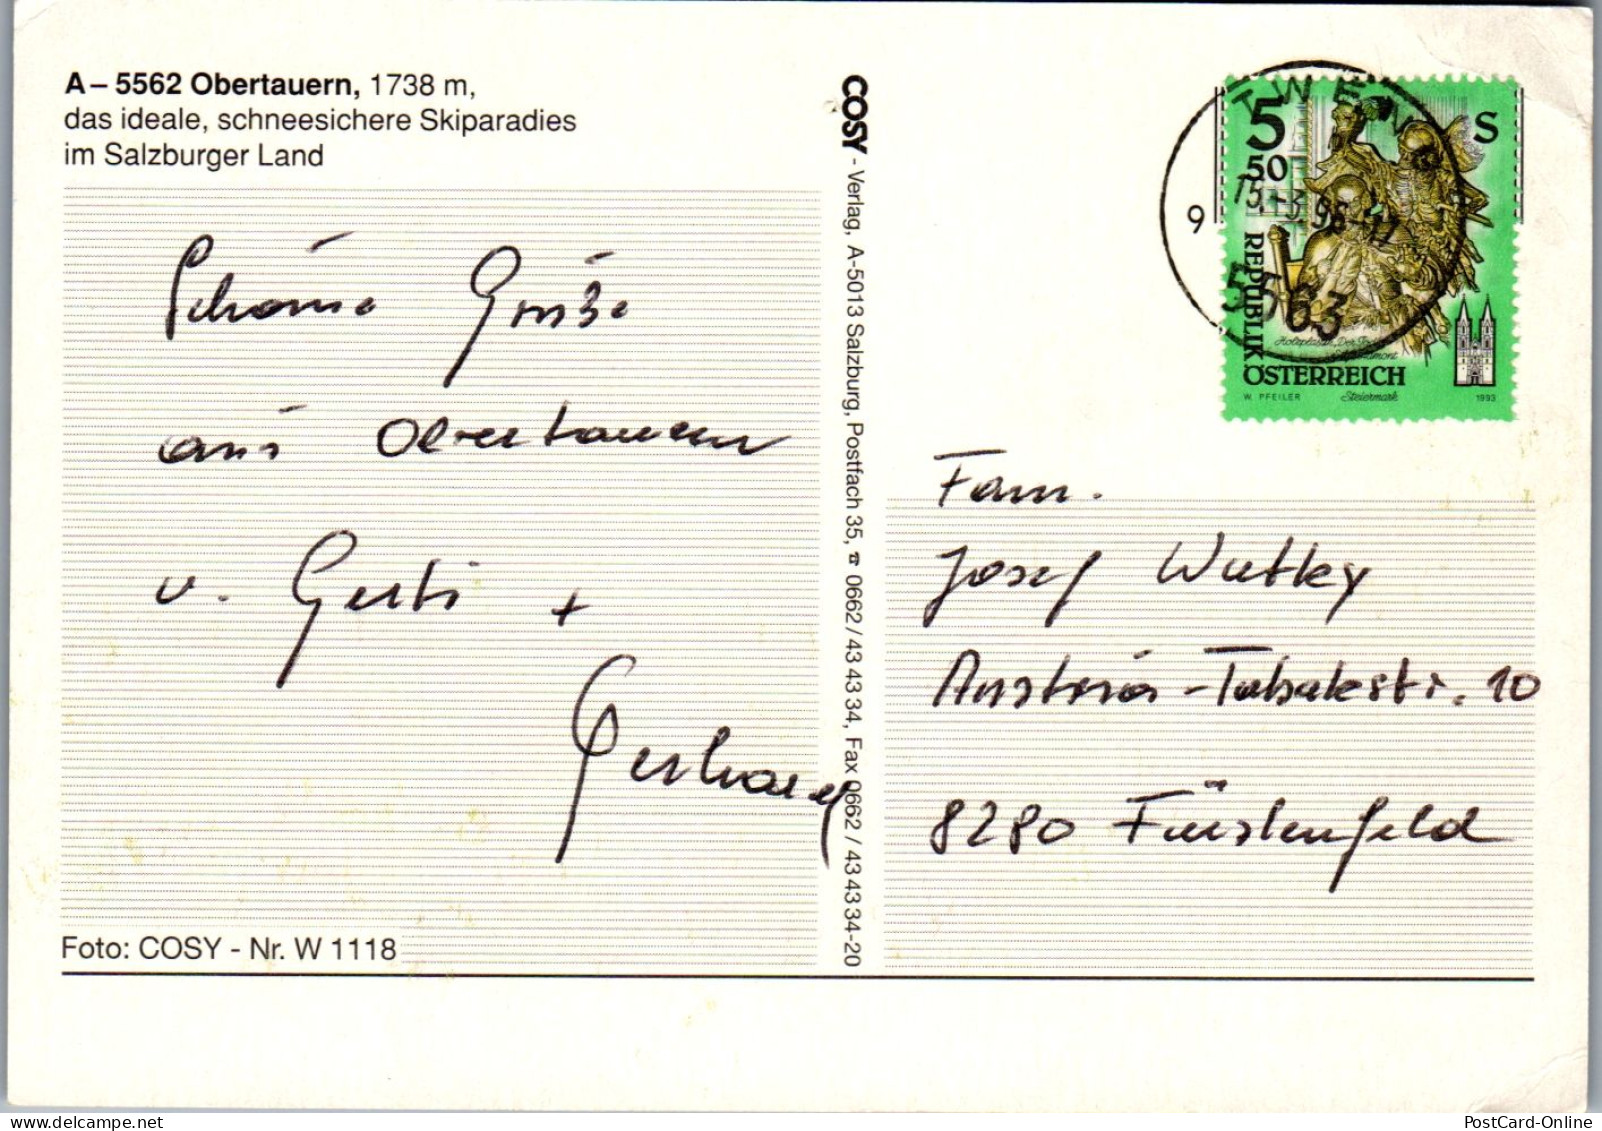 A – 5562 Obertauern, 1738 m,
das ideale, schneesichere Skiparadies
im Salzburger Land
Schöne Grüße
aus Obertauern
v. Gerti +
Gerhard
Foto: COSY - Nr. W 1118
COSY - Verlag, A-5013 Salzburg, Postfach 35, ☎ 0662 / 43 43 34, Fax 0662 / 43 43 34-20
TWENG
9
5563
5 50 S
REPUBLIK
ÖSTERREICH
W. PFEILER Steiermark 1993
Fam.
Josef Wutky
Austria-Tabakstr. 10
8280 Fürstenfeld
PostCard-Online